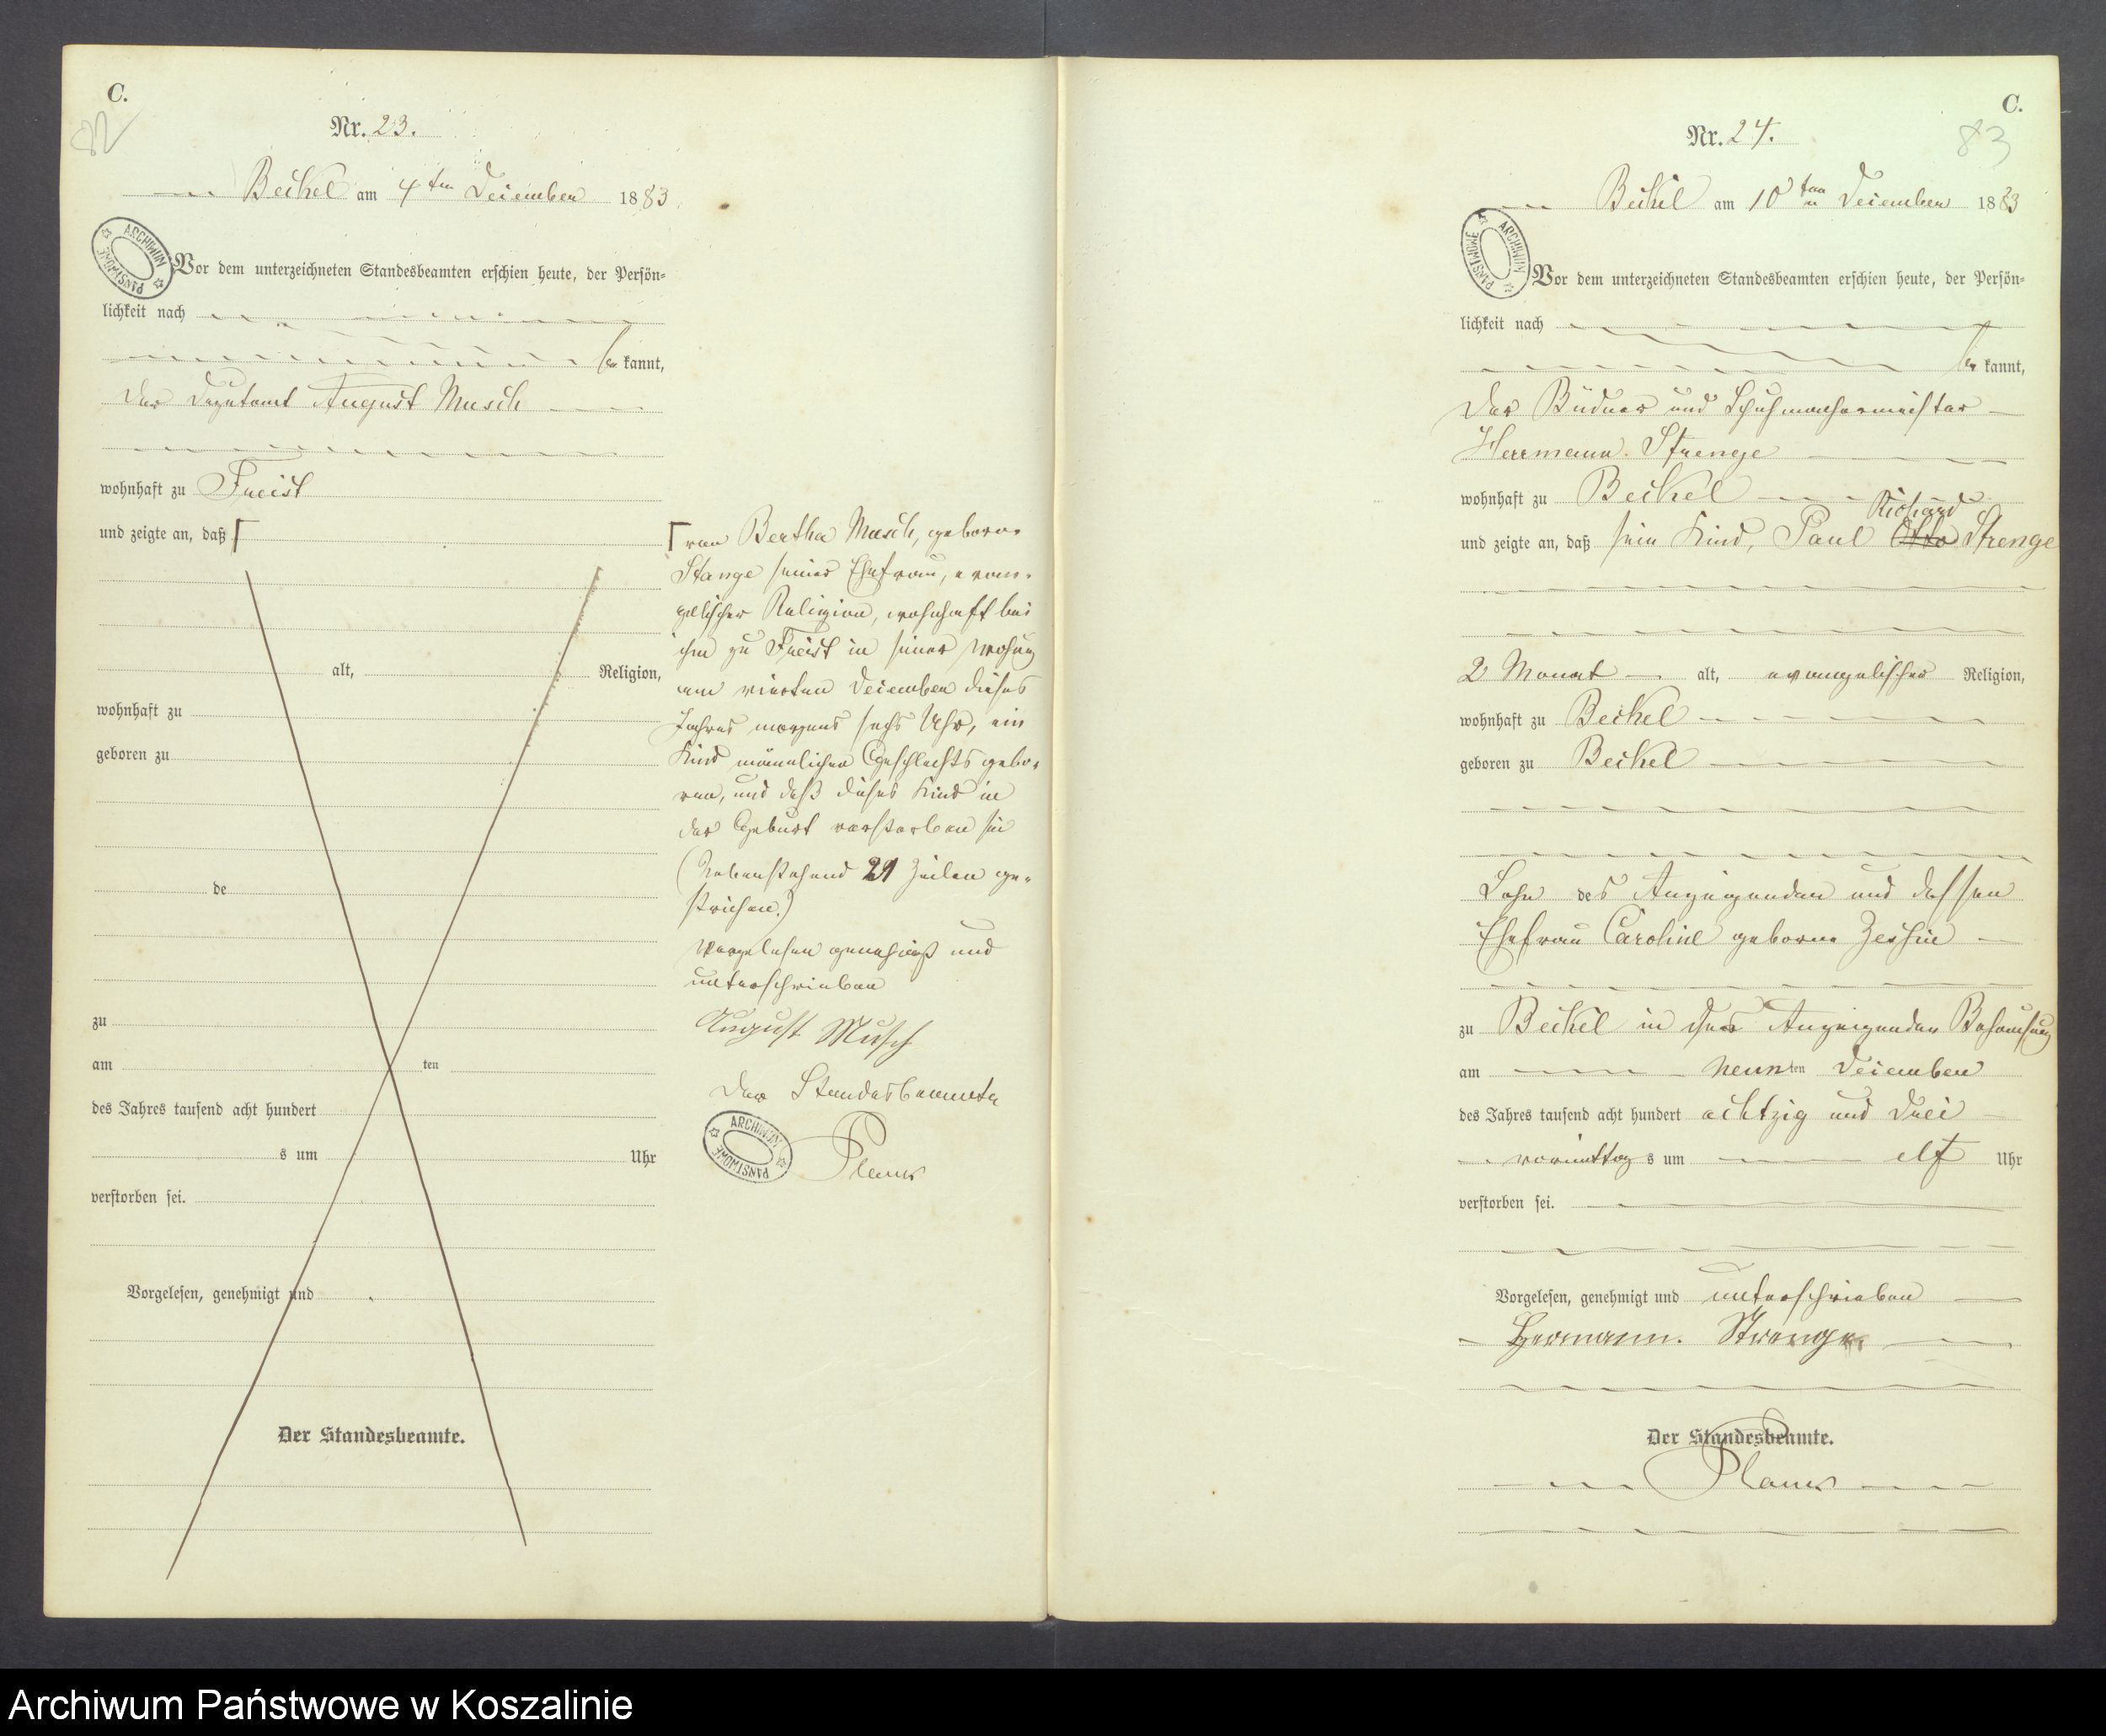 C.
82
Nr. 23.
Beikel am 4ten Dezember 1883
ARCHIWUM PAŃSTWOWE
Vor dem unterzeichneten Standesbeamten erschien heute, der Persön-
lichkeit nach
be kannt,
der Deputant August Musch
wohnhaft zu Freist
und zeigte an, daß
alt, Religion,
wohnhaft zu
geboren zu
de
zu
am ten
des Jahres tausend acht hundert
s um Uhr
verstorben sei.
Vorgelesen, genehmigt und
Der Standesbeamte.
von Bertha Musch, geborne
Stange seiner Ehefrau, evan-
gelischer Religion, wohnhaft bei
ihm zu Freist in seiner Wohung
am vierten Dezember dieses
Jahres morgens sechs Uhr, ein
Kind männlichen Geschlechts gebo-
ren, und daß dieses Kind in
der Geburt verstorben sei
(Nebenstehend 21 Zeilen ge-
strichen.)
Vorgelesen genehmigt und
unterschrieben
August Musch
Der Standesbeamte
ARCHIWUM PAŃSTWOWE
C.
83
Nr. 24.
Beikel am 10ten Dezember 1883
ARCHIWUM PAŃSTWOWE
Vor dem unterzeichneten Standesbeamten erschien heute, der Persön-
lichkeit nach
be kannt,
der Büdner und Schuhmachermeister
Herrmann Strenge
wohnhaft zu Beikel
Richard
und zeigte an, daß sein Kind, Paul Otto Strenge
2 Monat alt, evangelischer Religion,
wohnhaft zu Beikel
geboren zu Beikel
Sohn des Anzeigenden und dessen
Ehefrau Caroline geborne Zessin
zu Beikel in des Anzeigenden Behausung
am neunten Dezember
des Jahres tausend acht hundert achtzig und drei
vormittags um elf Uhr
verstorben sei.
Vorgelesen, genehmigt und unterschrieben
Hermann. Strenge
Der Standesbeamte.
Archiwum Państwowe w Koszalinie